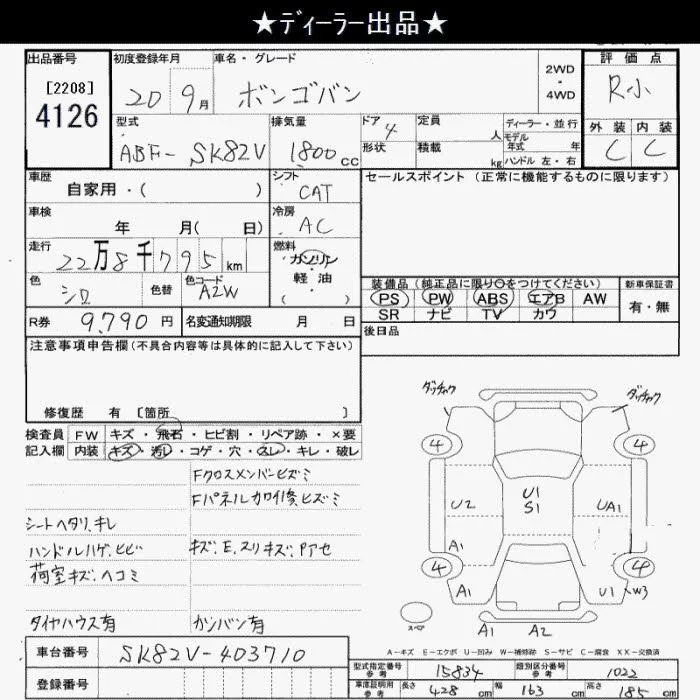 ★ディーラー出品★
出品番号 初度登録年月 車名・グレード 2WD・4WD 評価点
[2208] 4126 20 9月 ボンゴバン R小
型式 排気量 ドア 4 定員 人 ディーラー・並行 外装 内装
ABF-SK82V 1800cc 形状 積載 kg モデル年式 年 ハンドル 左・右 C C
車歴 シフト セールスポイント (正常に機能するものに限ります)
自家用・( ) CAT
車検 冷房
年 月( 日) AC
走行 燃料
22万8千795km ガソリン・軽油・( )
色 色替 色コード 装備品 (純正品に限り○をつけてください) 新車保証書
シロ A2W PS PW ABS エアB AW 有・無
R券 9,790円 名変通知期限 月 日 SR ナビ TV カワ
注意事項申告欄(不具合内容等は具体的に記入して下さい) 後日品
修復歴 有 [箇所 ]
検査員 FW キズ・飛石・ヒビ割・リペア跡・×要
記入欄 内装 キズ・汚レ・コゲ・穴・スレ・キレ・破レ
Fクロスメンバーヒズミ
Fパネルカワ修、ヒズミ
シートヘタリ、キレ
ハンドルハゲ、ヒビ キズ、E、スリキズ、Pアセ
荷室キズ、ヘコミ
タイヤハウス有 カンバン有
ダッチャク ダッチャク
4 4
U2 U1 S1 UA1
A1
4 4
A1 U1 W3
スペア A1 A2
A-キズ E-エクボ U-凹み W-補修跡 S-サビ C-腐食 XX-交換済
車台番号 SK82V-403710 型式指定番号 参考 15834 類別区分番号 参考 1022
登録番号 車庫証明用 参考 長さ 428cm 幅 163cm 高さ 185cm